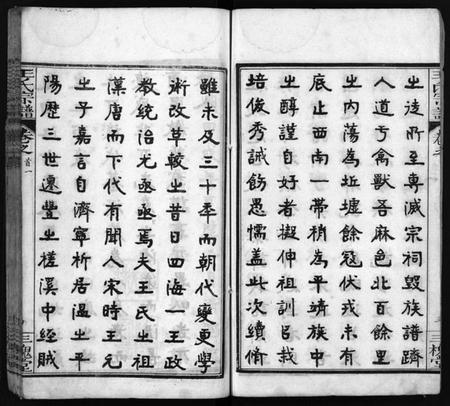 之徒所至專滅宗祠毀族譜躋
人道于禽獸吾麻邑北百餘里
之内蕩為坵墟餘冦伏戎未有
底止西南一帶稍為平靖族中
之醇謹自好者擬伸祖訓㠯栽
培俊秀誡飭愚懦蓋此次續脩
雖未及三十年而朝代變更學
術改革較之昔日四海一王政
教統治尤亟亟焉夫王氏之祖
漢唐而下代有聞人宋時王元
之子嘉言自濟寧析居温之平
陽歷三世遷豐之槎溪中經賊
王氏宗譜
卷之
首一
三槐堂